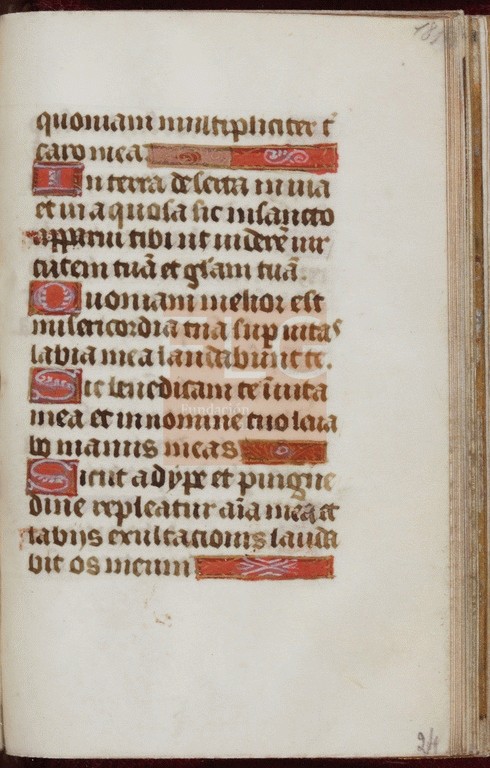 quoniam multipliciter t̄
caro mea
In terra deserta in uia
et in aquosa sic in sancto
apparui tibi ut uiderē uir
tutem tuā et gl̄am tuā.
Quoniam melior est
misericordia tua sup uitas
labia mea laudabunt te.
Sic benedicam te ī uita
mea et in nomine tuo leua
bo manus meas
Sicut adype et pingue
dine repleatur aīa mea et
labijs exultacionis lauda
bit os meum
fundación
24